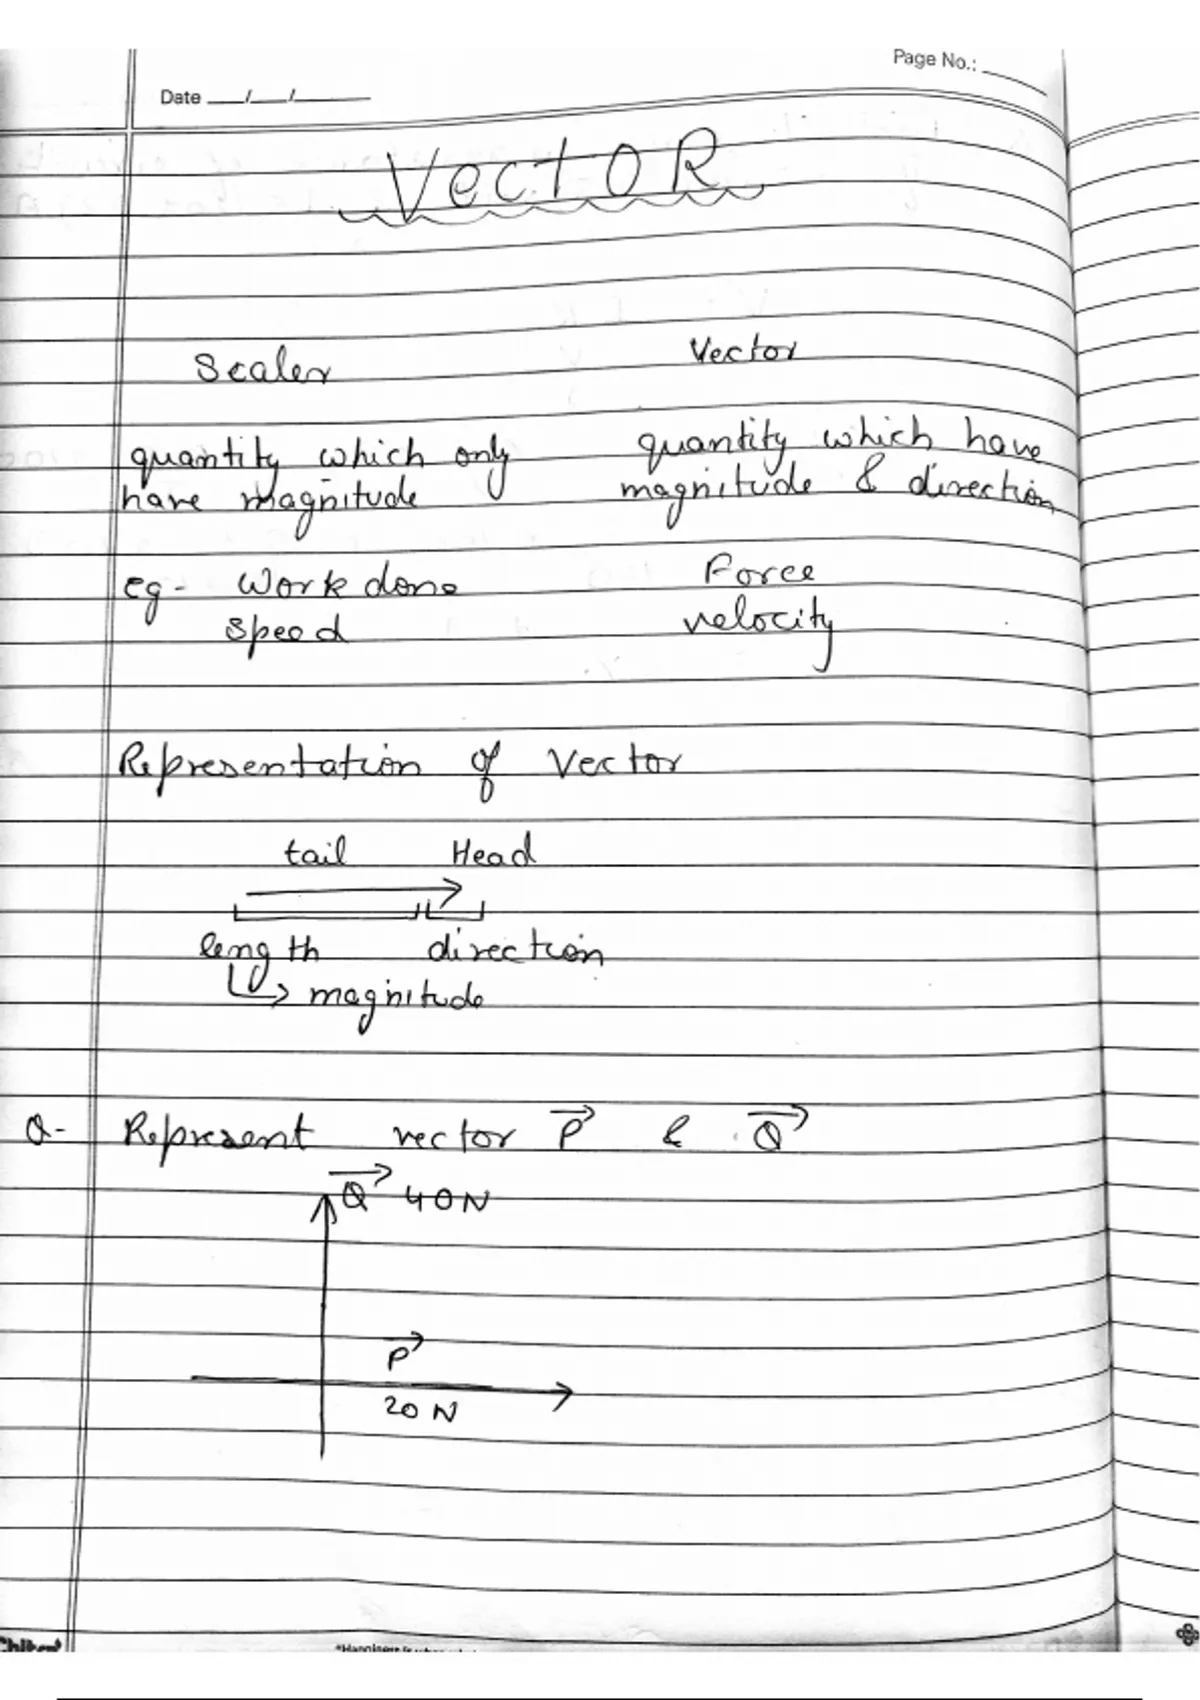 Page No.:
Date __/__/____
VectOR
Scaler Vector
quantity which only quantity which have
have magnitude magnitude & direction
eg- Work done Force
speed velocity
Representation of Vector
tail Head
length direction
↳ magnitude
Q- Represent vector P⃗ & Q⃗
Q⃗ 40N
P⃗
20 N